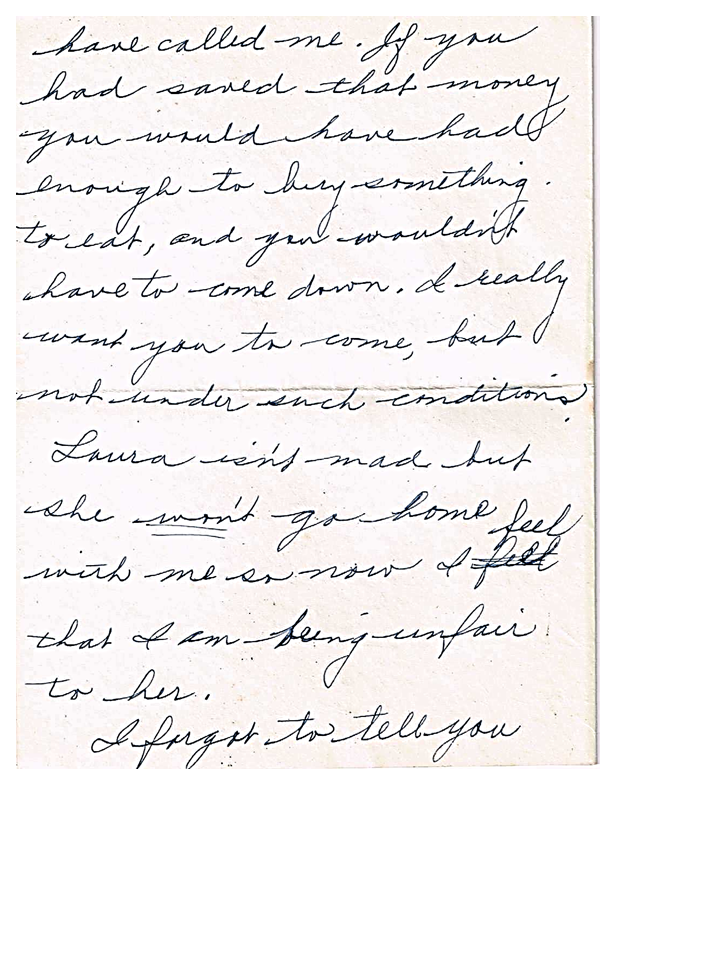 have called me. If you
had saved that money
you would have had
enough to buy something.
to eat, and you wouldn't
have to come down. I really
want you to come, but
not under such conditions.
Laura isn't mad but
she won't go home
feel
with me so now I felt
that I am being unfair
to her.
I forgot to tell you